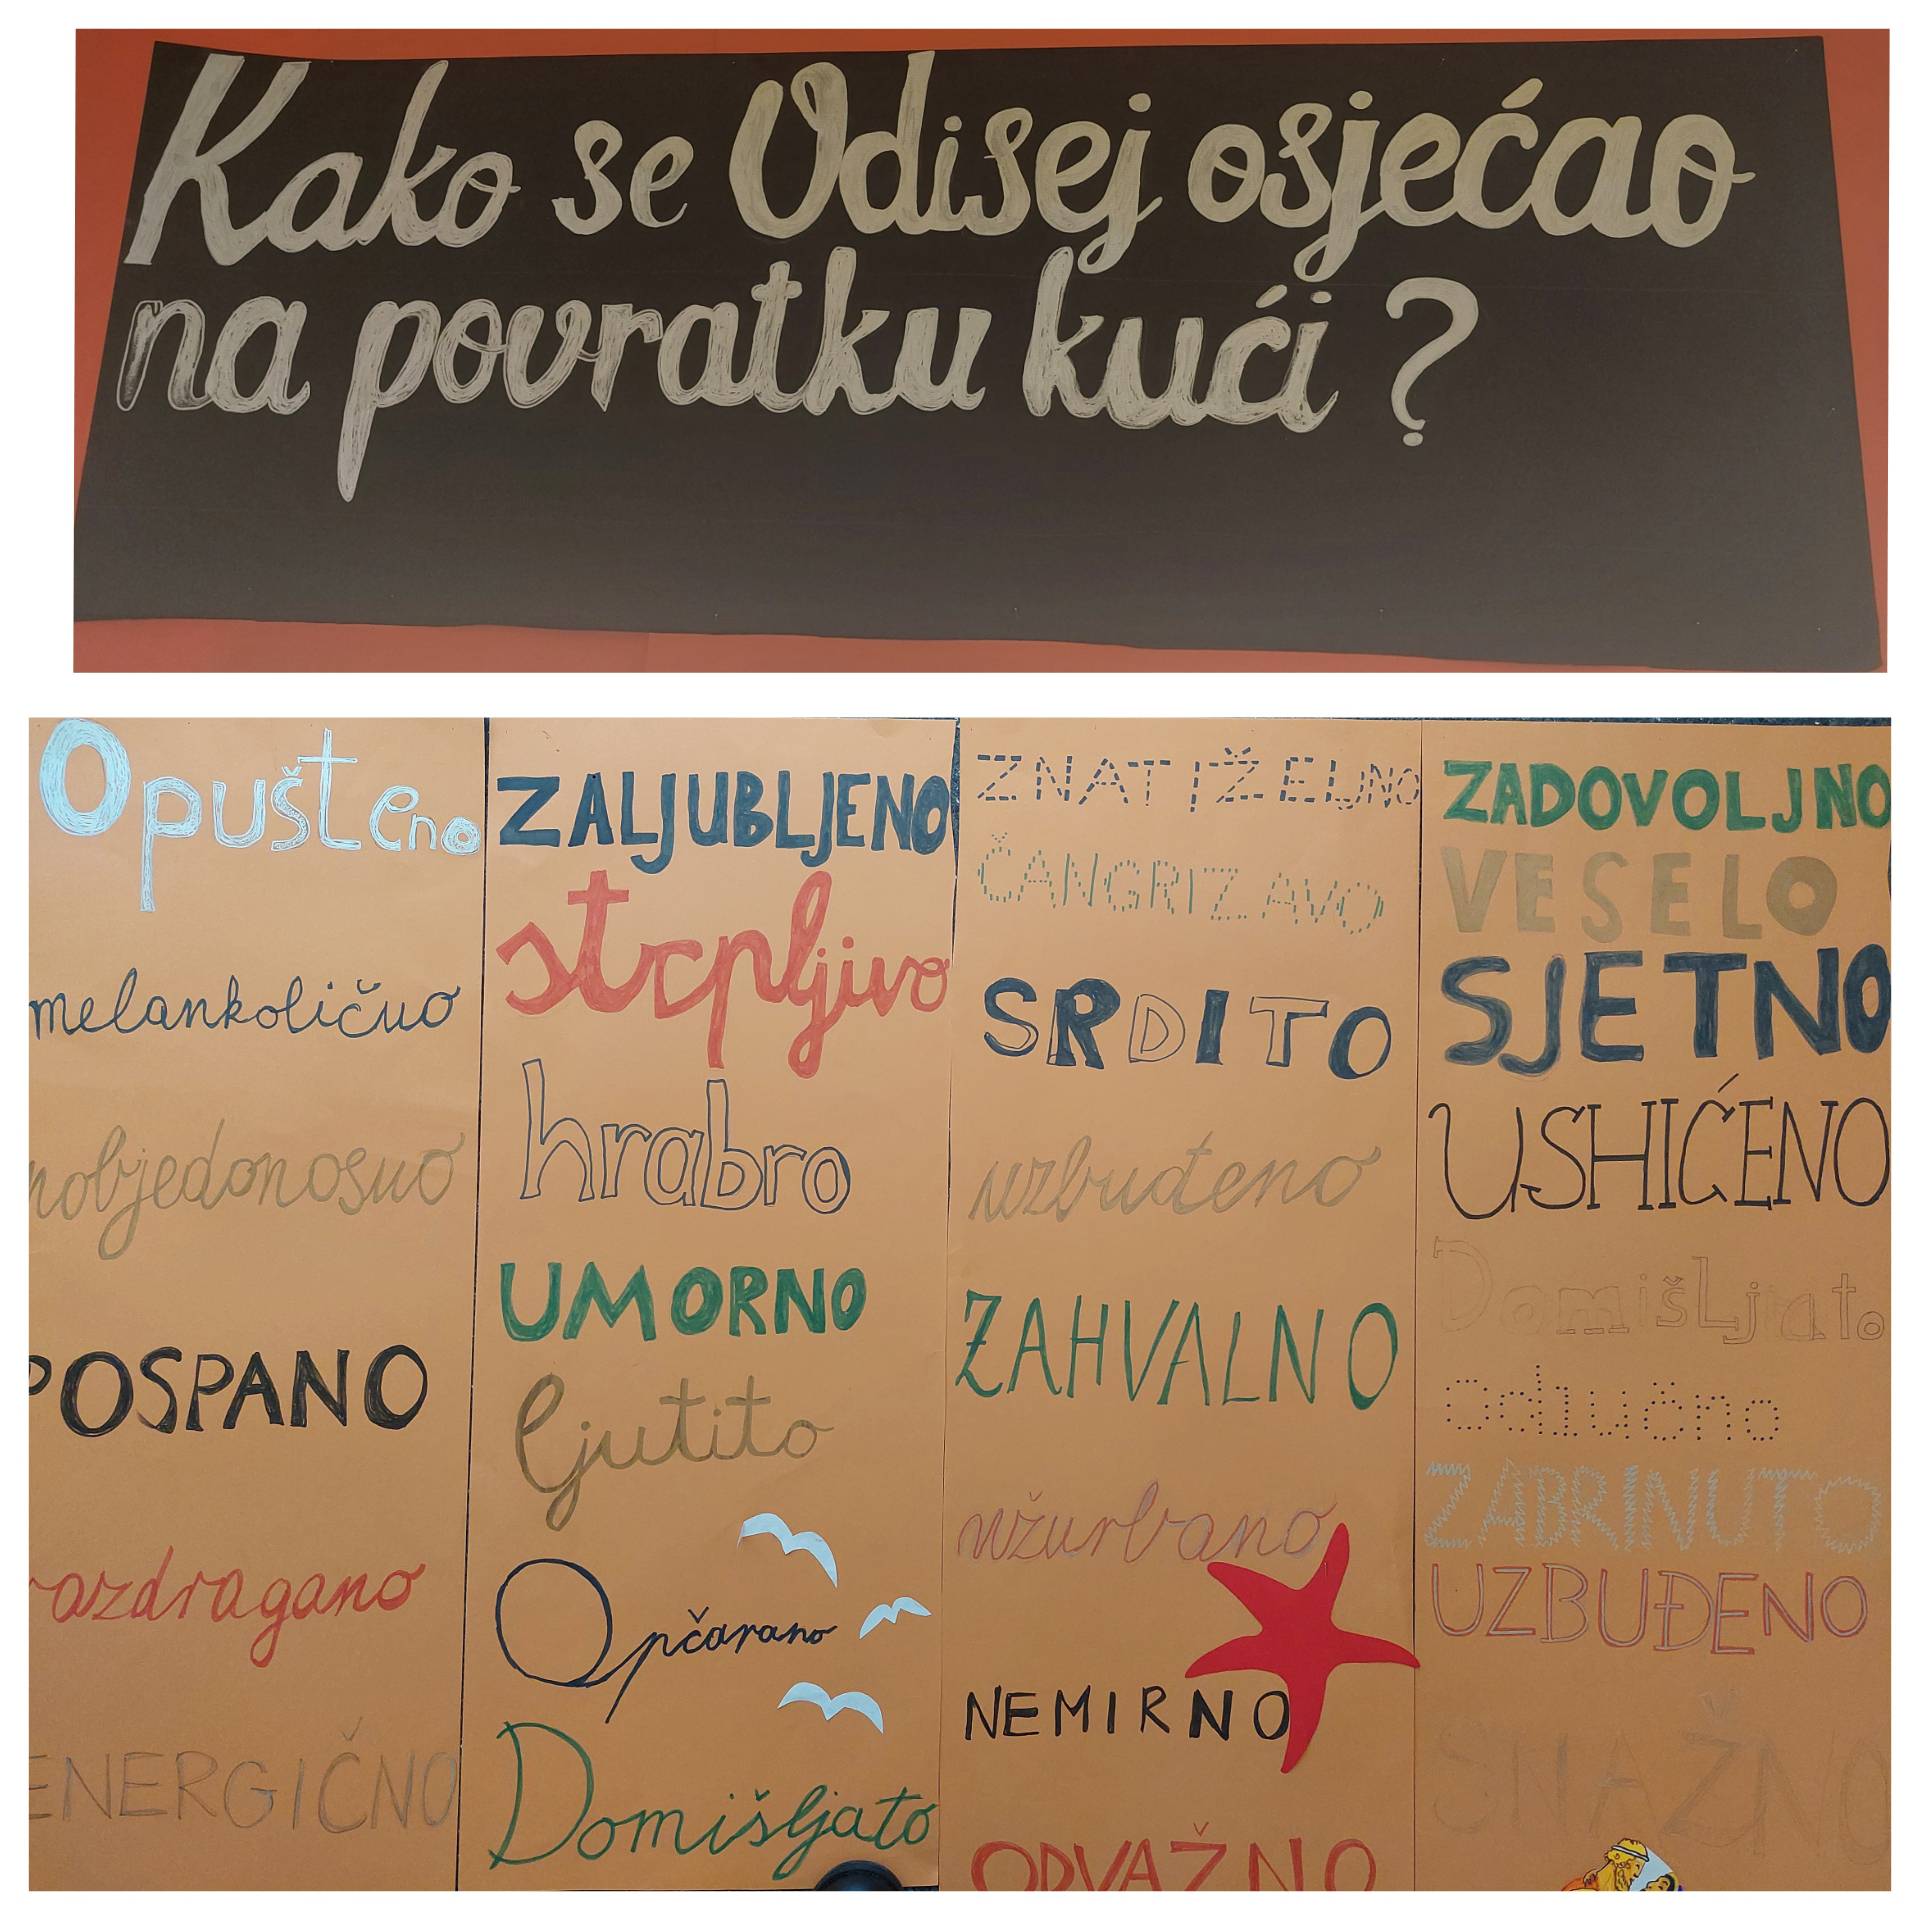 Kako se Odisej osjećao
na povratku kući?
Opušteno
melankolično
pobjedonosno
POSPANO
razdragano
ENERGIČNO
ZALJUBLJENO
strpljivo
hrabro
UMORNO
ljutito
Opčarano
Domišljato
ZNATIŽELJNO
ČANGRIZAVO
SRDITO
uzbuđeno
ZAHVALNO
užurbano
NEMIRNO
ODVAŽNO
ZADOVOLJNO
VESELO
SJETNO
USHIĆENO
Domišljato
odlučno
ZABRINUTO
UZBUĐENO
SNAŽNO